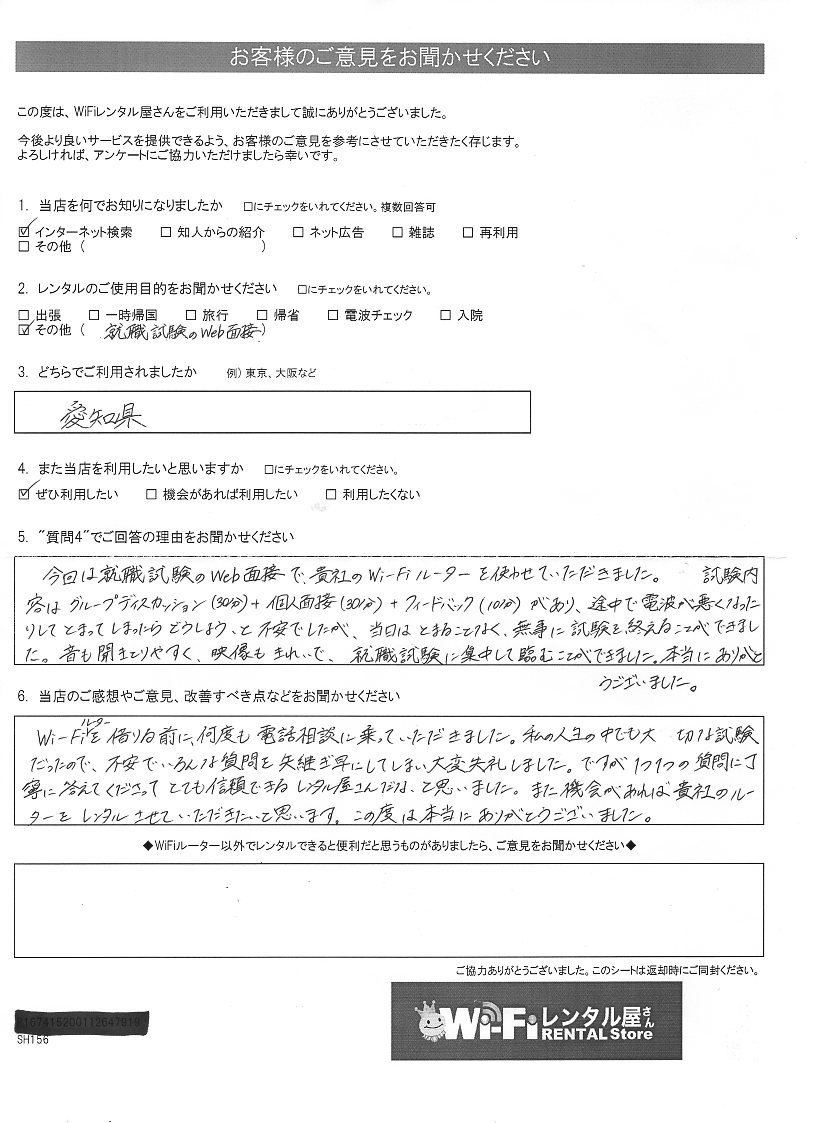 お客様のご意見をお聞かせください
この度は、WiFiレンタル屋さんをご利用いただきまして誠にありがとうございました。
今後より良いサービスを提供できるよう、お客様のご意見を参考にさせていただきたく存じます。
よろしければ、アンケートにご協力いただけましたら幸いです。
1. 当店を何でお知りになりましたか □にチェックをいれてください。複数回答可
☑ インターネット検索 □ 知人からの紹介 □ ネット広告 □ 雑誌 □ 再利用
□ その他 ( )
2. レンタルのご使用目的をお聞かせください □にチェックをいれてください。
□ 出張 □ 一時帰国 □ 旅行 □ 帰省 □ 電波チェック □ 入院
☑ その他 ( 就職試験のWeb面接 )
3. どちらでご利用されましたか 例) 東京、大阪など
愛知県
4. また当店を利用したいと思いますか □にチェックをいれてください。
☑ ぜひ利用したい □ 機会があれば利用したい □ 利用したくない
5. "質問4"でご回答の理由をお聞かせください
今回は就職試験のWeb面接で、貴社のWi-Fiルーターを使わせていただきました。 試験内
容はグループディスカッション(30分)+個人面接(30分)+フィードバック(10分)があり、途中で電波が悪くなった
りしてとまってしまったらどうしよう、と不安でしたが、当日はとまることなく、無事に試験を終えることができまし
た。音も聞きとりやすく、映像もきれいで、就職試験に集中して臨むことができました。本当にありがと
うございました。
6. 当店のご感想やご意見、改善すべき点などをお聞かせください
Wi-Fiルーターを借りる前に、何度も電話相談に乗っていただきました。私の人生の中でも大 切な試験
だったので、不安でいろんな質問を矢継ぎ早にしてしまい大変失礼しました。ですが1つ1つの質問に丁
寧に答えてくださってとても信頼できるレンタル屋さんだな、と思いました。また機会があれば貴社のルー
ターをレンタルさせていただきたいと思います。この度は本当にありがとうございました。
◆WiFiルーター以外でレンタルできると便利だと思うものがありましたら、ご意見をお聞かせください◆
ご協力ありがとうございました。このシートは返却時にご同封ください。
SH156
Wi-Fiレンタル屋さん
RENTAL Store